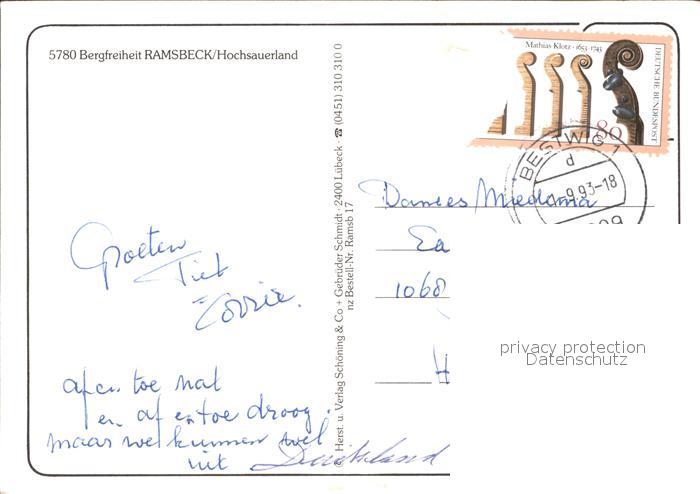 5780 Bergfreiheit RAMSBECK/Hochsauerland
Groeten
Piet
Corrie.
af en toe nat
en af en toe droog.
maar we kunnen wel
uit Duitsland
© Herst. u. Verlag Schöning & Co + Gebrüder Schmidt · 2400 Lübeck · ☎ (0451) 310 310 0
nz Bestell-Nr. Ramsb 17
Mathias Klotz · 1653-1743
DEUTSCHE BUNDESPOST
80
BESTWIG 1
d
9.93-18
Miedema
Ea
1068
H
privacy protection
Datenschutz